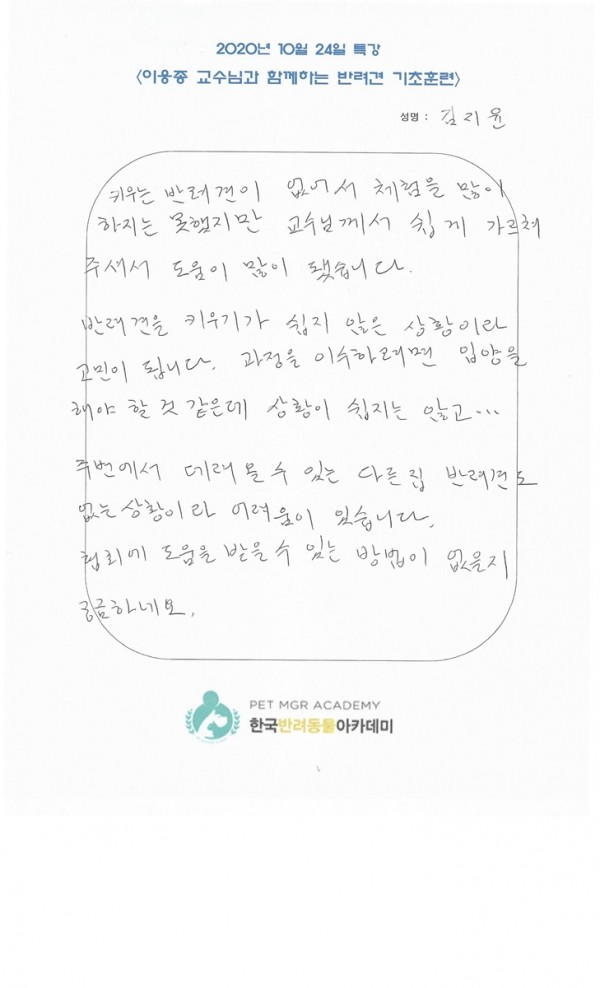 2020년 10월 24일 특강
<이웅종 교수님과 함께하는 반려견 기초훈련>
성명 : 김지윤
키우는 반려견이 없어서 체험을 많이
하지는 못했지만 교수님께서 쉽게 가르쳐
주셔서 도움이 많이 됐습니다.
반려견을 키우기가 쉽지 않은 상황이라
고민이 됩니다. 과정을 이수하려면 입양을
해야 할 것 같은데 상황이 쉽지는 않고...
주변에서 데려 올 수 있는 다른집 반려견도
없는 상황이라 어려움이 있습니다.
협회에 도움을 받을 수 있는 방법이 없을지
궁금하네요.
PET MGR ACADEMY
한국반려동물아카데미